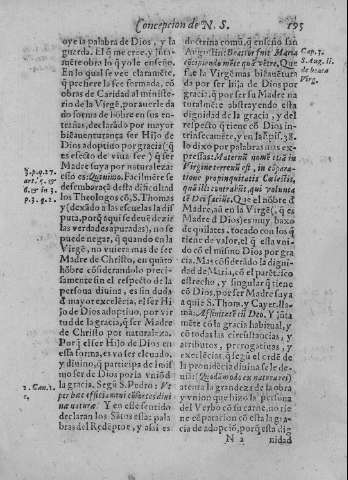 Concepcion de N. S. 195
oye la palabra de Dios, y la
guarda. El q̃ me cree, y jũta-
mẽte obra lo q̃ yo le enseño.
En lo qual se vee claramẽte,
q̃ prefiere la fee formada, cõ
obras de Caridad al ministe-
rio de la Virgẽ, por auerle da
do forma de hõbre en sus en-
trañas, declarãdo por mayor
bienauenturança ser Hijo de
Dios adoptiuo por gracia (q̃
es efecto de viua fee) q̃ ser
Madre suya por naturaleza:
esto es: Quinimo. Facilmẽte se
desembaraçã desta dificultad
los Theologos cõ S. Thomas
y (dexãdo a las escuelas la dis
puta, porq̃ aqui se deuẽ dezir
las verdades apuradas), no se
puede negar, q̃ quando en la
Virgẽ, no vuieramas de ser
Madre de Christo, en quanto
hõbre cõsiderandolo preci-
samente sin el respecto de la
persona diuina, es sin duda
d̃ mayor excelẽcia, el ser Hi-
jo de Dios adoptiuo, por vir
tud de la gracia, q̃ ser Madre
de Christo por naturaleza.
Porq̃ el ser Hijo de Dios en
essa forma, es vn ser eleuado,
y diuino, q̃ participa de mis-
mo ser de Dios por la vniõ d̃
la gracia. Segũ S. Pedro:
na naturæ Y en este sentido
declaran los Sãtos esta: pala
bras del Redẽptor, y assi es
3. p. q. 27.
art. 5. &
6. & in 3.
p. 3. q. 2.
2. Can. 1.
c,
dectrina comũ, q̃ enseño San
Augustin: Beatior fuit Maria
cõcipiendo mẽte quã vẽtre. Que
fue a la Virgẽ mas biẽauẽtura
da por ser hija de Dios por
gracia; q̃ por ser su Madre na
turalmẽte abstrayendo esta
dignidad de la gracia, y del
respecto q̃ tiene cõ Dios in-
trinsecamẽte, y en la disp. 38.
lo dixo por palabras mas ex
pressas: Maternũ nomẽ etiã in
Virgine terrenũ est, in cõpara-
tione propinquitatis Cælestis,
quã illi contrahũt, qui volunta
tẽ Dei faciũt. Que el nõbre d̃
Madre, aũ en la Virgẽ, (q̃ es
Madre d̃ Dios) es muy baxo
de quilates, tocado con los q̃
tiene de valor, el q̃ esta vni-
do cõ el mismo Dios por gra
cia. Mas cõsiderãdo la digni-
dad de Maria, cõ el parẽtesco
estrecho, y singular q̃ tiene
cõ Dios, por ser Madre suya
a quiẽ S. Thom. y Cayet. lla-
ma: Affinitatẽ cũ Deo. Y jũta
mẽte cõ la gracia habitual, y
cõ todas las circustancias, y
atributos, prerogatiuas, y
excelẽcias, q̃ segũ el ordẽ de
la prouidẽcia diuina se le de-
uia: (Quodãmodo ex natura rei)
atenta la grandeza de la obra
y vnion que hizo la persona
del Verbo cõ su carne, no tie
ne cõparaciõ cõ esta la gra-
cia de adopciõ, porq̃ esta dig
N 2 nidad
Cap. 3.
S. Aug. li.
de beata
Virg.